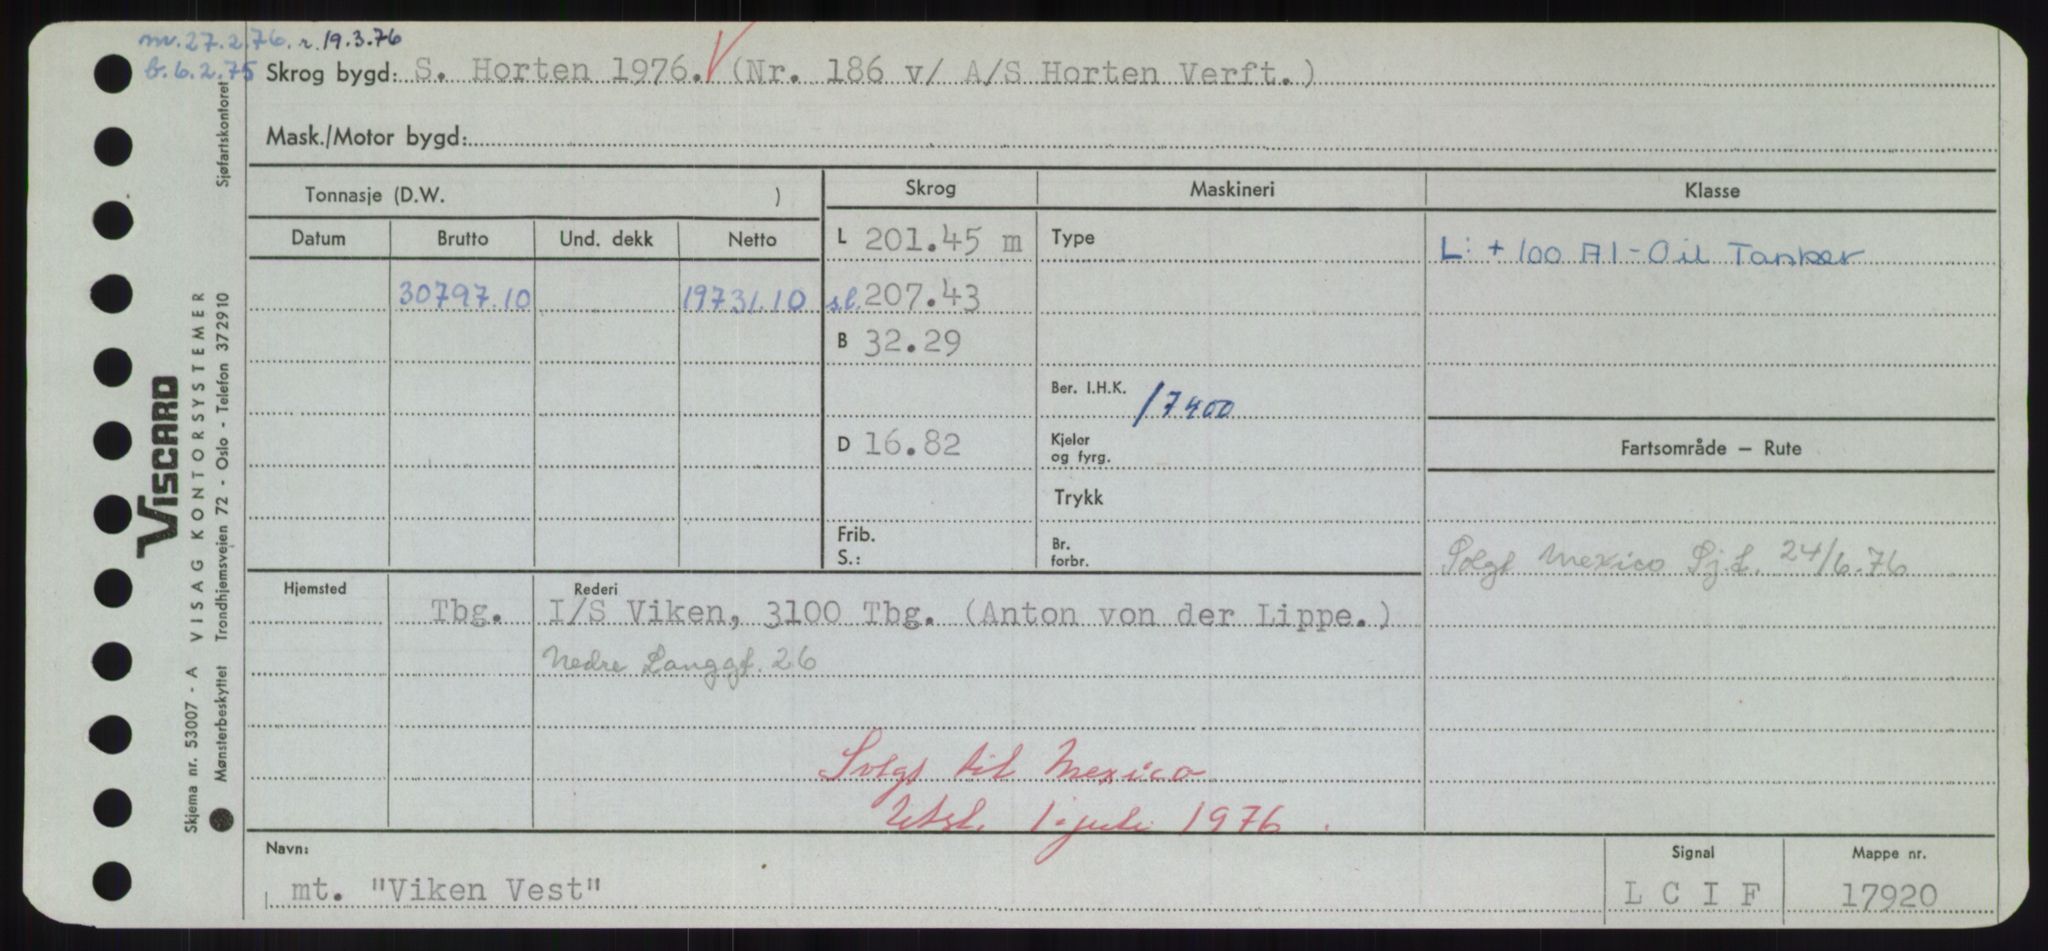 nv. 27.2.76. r. 19.3.76
b. 6.2.75 Skrog bygd: S. Horten 1976. V (Nr. 186 v/ A/S Horten Verft.)
Mask./Motor bygd:
Sjøfartskontoret
Tonnasje (D.W. ) Skrog Maskineri Klasse
Datum Brutto Und. dekk Netto L 201.45 m Type L: + 100 A1 - Oil Tanker
30797.10 19731.10 s.l. 207.43
B 32.29
Ber. I.H.K. 17400
D 16.82 Kjeler og fyrg. Fartsområde — Rute
Trykk
Frib. S.: Br. forbr. Solgt Mexico Sj.f. 24/6.76
Hjemsted Rederi
Tbg. I/S Viken, 3100 Tbg. (Anton von der Lippe.)
Nedre Langgt. 26
Solgt til Mexico
Utsl. 1. juli 1976.
Navn: Signal Mappe nr.
mt. "Viken Vest" L C I F 17920
VISCARD
Skjema nr. 53007 - A VISAG KONTORSYSTEMER
Mønsterbeskyttet Trondhjemsveien 72 - Oslo - Telefon 372910